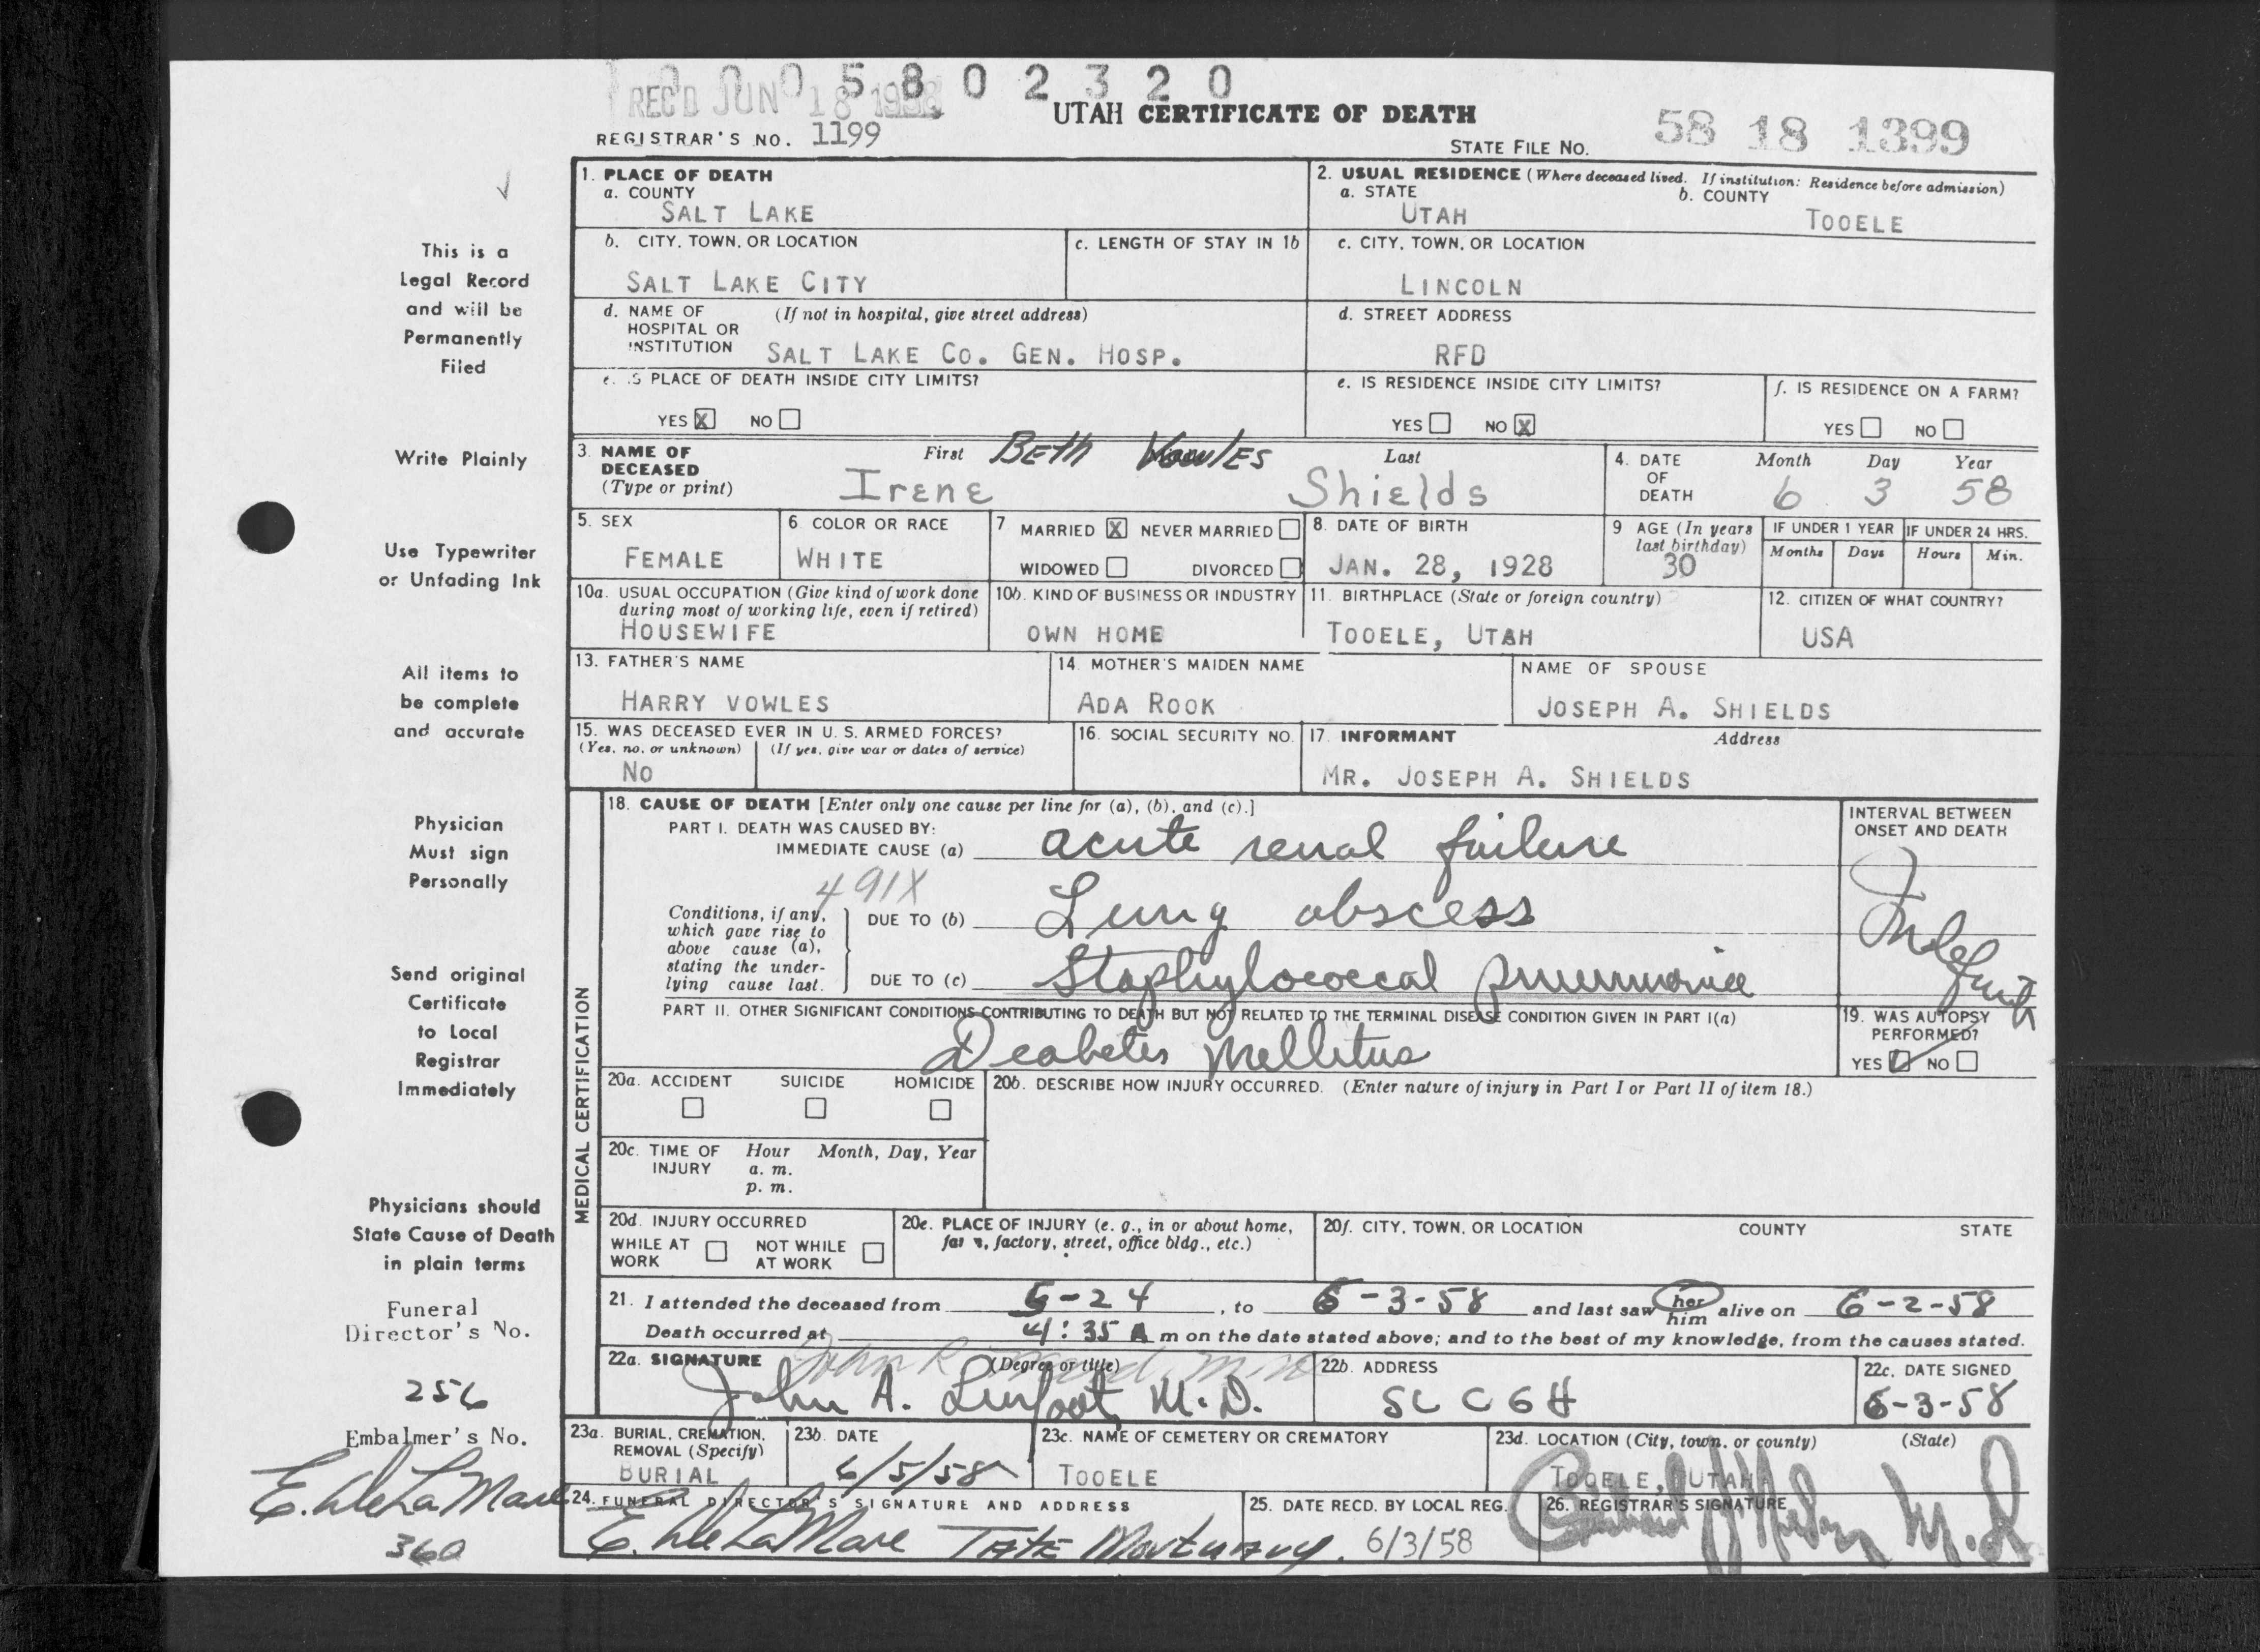 0 0 0 5 8 0 2 3 2 0
REC'D JUN 18 1958
UTAH CERTIFICATE OF DEATH
REGISTRAR'S NO. 1199
STATE FILE NO. 58 18 1399
1. PLACE OF DEATH
a. COUNTY
SALT LAKE
2. USUAL RESIDENCE (Where deceased lived. If institution: Residence before admission)
a. STATE b. COUNTY
UTAH TOOELE
b. CITY, TOWN, OR LOCATION
SALT LAKE CITY
c. LENGTH OF STAY IN 1b
c. CITY, TOWN, OR LOCATION
LINCOLN
d. NAME OF (If not in hospital, give street address)
HOSPITAL OR
INSTITUTION SALT LAKE CO. GEN. HOSP.
d. STREET ADDRESS
RFD
e. IS PLACE OF DEATH INSIDE CITY LIMITS?
YES X NO
e. IS RESIDENCE INSIDE CITY LIMITS?
YES NO X
f. IS RESIDENCE ON A FARM?
YES NO
3. NAME OF First BETH VOWLES Last
DECEASED
(Type or print) Irene Shields
4. DATE Month Day Year
OF
DEATH 6 3 58
5. SEX
FEMALE
6. COLOR OR RACE
WHITE
7 MARRIED X NEVER MARRIED
WIDOWED DIVORCED
8. DATE OF BIRTH
JAN. 28, 1928
9 AGE (In years
last birthday)
30
IF UNDER 1 YEAR IF UNDER 24 HRS.
Months Days Hours Min.
10a. USUAL OCCUPATION (Give kind of work done
during most of working life, even if retired)
HOUSEWIFE
10b. KIND OF BUSINESS OR INDUSTRY
OWN HOME
11. BIRTHPLACE (State or foreign country)
TOOELE, UTAH
12. CITIZEN OF WHAT COUNTRY?
USA
13. FATHER'S NAME
HARRY VOWLES
14. MOTHER'S MAIDEN NAME
ADA ROOK
NAME OF SPOUSE
JOSEPH A. SHIELDS
15. WAS DECEASED EVER IN U. S. ARMED FORCES?
(Yes, no, or unknown) (If yes, give war or dates of service)
NO
16. SOCIAL SECURITY NO.
17. INFORMANT Address
MR. JOSEPH A. SHIELDS
MEDICAL CERTIFICATION
18. CAUSE OF DEATH [Enter only one cause per line for (a), (b), and (c).]
PART I. DEATH WAS CAUSED BY:
IMMEDIATE CAUSE (a) acute renal failure
491X
Conditions, if any,
which gave rise to
above cause (a),
stating the under-
lying cause last.
DUE TO (b) Lung abscess
DUE TO (c) Staphylococcal pneumonia
INTERVAL BETWEEN
ONSET AND DEATH
PART II. OTHER SIGNIFICANT CONDITIONS CONTRIBUTING TO DEATH BUT NOT RELATED TO THE TERMINAL DISEASE CONDITION GIVEN IN PART I(a)
Deabetes Mellitus
19. WAS AUTOPSY
PERFORMED?
YES NO
20a. ACCIDENT SUICIDE HOMICIDE
20b. DESCRIBE HOW INJURY OCCURRED. (Enter nature of injury in Part I or Part II of item 18.)
20c. TIME OF Hour Month, Day, Year
INJURY a. m.
p. m.
20d. INJURY OCCURRED
WHILE AT NOT WHILE
WORK AT WORK
20e. PLACE OF INJURY (e. g., in or about home,
farm, factory, street, office bldg., etc.)
20f. CITY, TOWN, OR LOCATION COUNTY STATE
21. I attended the deceased from 5-24, to 6-3-58 and last saw her him alive on 6-2-58
Death occurred at 4:35 A m on the date stated above; and to the best of my knowledge, from the causes stated.
22a. SIGNATURE (Degree or title)
John A. Linfoot, M.D.
22b. ADDRESS
SLCGH
22c. DATE SIGNED
6-3-58
23a. BURIAL, CREMATION,
REMOVAL (Specify)
BURIAL
23b. DATE
6/5/58
23c. NAME OF CEMETERY OR CREMATORY
TOOELE
23d. LOCATION (City, town, or county) (State)
TOOELE, UTAH
24. FUNERAL DIRECTOR'S SIGNATURE AND ADDRESS
E. DeLaMare TATE Mortuary.
25. DATE RECD. BY LOCAL REG.
6/3/58
26. REGISTRAR'S SIGNATURE
M.D.
This is a
Legal Record
and will be
Permanently
Filed
Write Plainly
Use Typewriter
or Unfading Ink
All items to
be complete
and accurate
Physician
Must sign
Personally
Send original
Certificate
to Local
Registrar
Immediately
Physicians should
State Cause of Death
in plain terms
Funeral
Director's No.
256
Embalmer's No.
E. DeLaMare
360